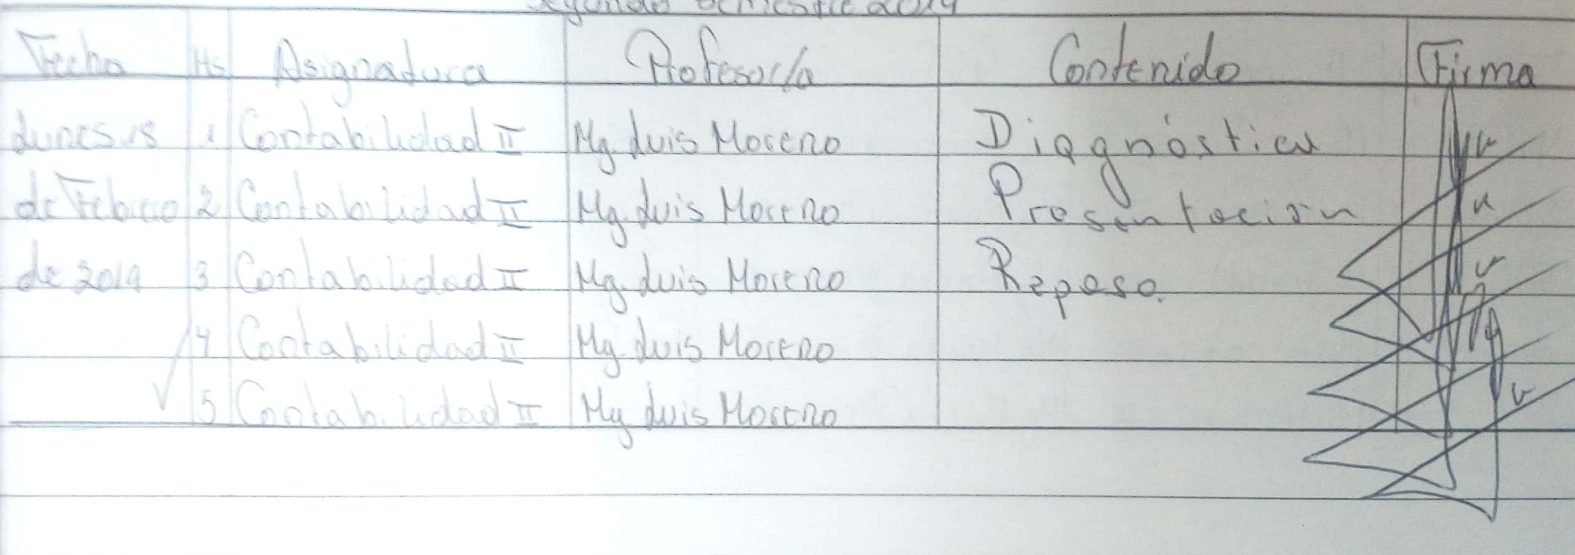 Segundo Semestre 2019
Fecha Hs Asignatura Profesor/a Contenido Firma
Lunes 18 1 Contabilidad II Mg. Luis Moreno Diagnóstica
de Febrero 2 Contabilidad II Mg. Luis Moreno Presentación
de 2019 3 Contabilidad II Mg. Luis Moreno Repaso.
4 Contabilidad II Mg. Luis Moreno
5 Contabilidad II Mg Luis Moreno